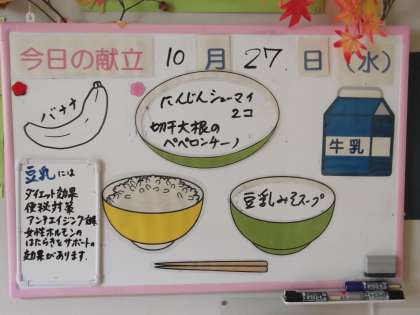 今日の献立 10月27日（水）
バナナ
にんじんシューマイ
2コ
切干大根の
ペペロンチーノ
牛乳
豆乳には
ダイエット効果
便秘対策
アンチエイジング効果
女性ホルモンの
はたらきをサポートの
効果があります。
豆乳みそスープ